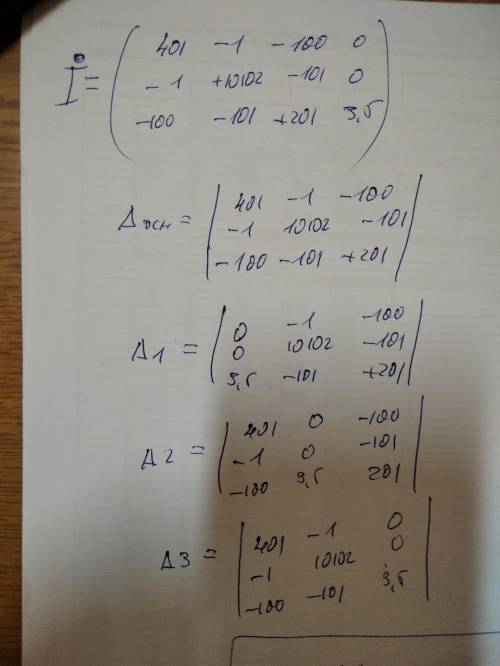 İ = ( 401 -1 -100 0
-1 +10102 -101 0
-100 -101 +201 3,5 )
Δосн = | 401 -1 -100
-1 10102 -101
-100 -101 +201 |
Δ1 = | 0 -1 -100
0 10102 -101
3,5 -101 +201 |
Δ2 = | 401 0 -100
-1 0 -101
-100 3,5 201 |
Δ3 = | 401 -1 0
-1 10102 0
-100 -101 3,5 |